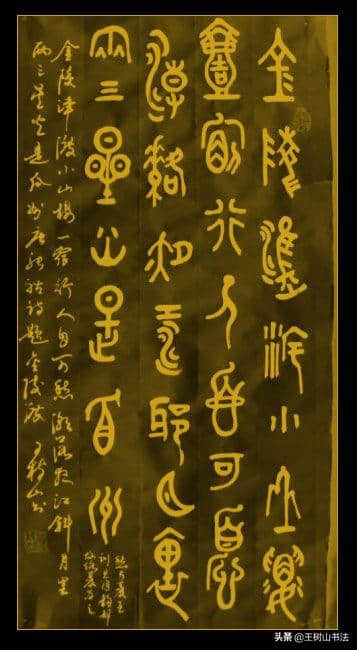 金陵津渡小山樓
壹宿行人自可愁
潮落夜江斜月裏
兩三星火是瓜州
金陵津渡小山樓一宿行人自可愁潮落夜江斜月里
兩三星火是瓜州唐張祜詩題金陵渡王樹山书
头条 @王树山书法